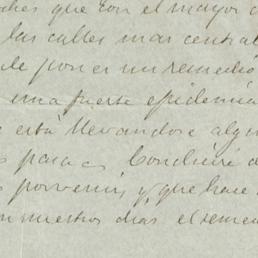 que con el mayor
las calles mas central
de poner un remedio
una fuerte epidemia
está llevandose algu
para Concluiré
porvenir y que hace
nuestros dias el semen